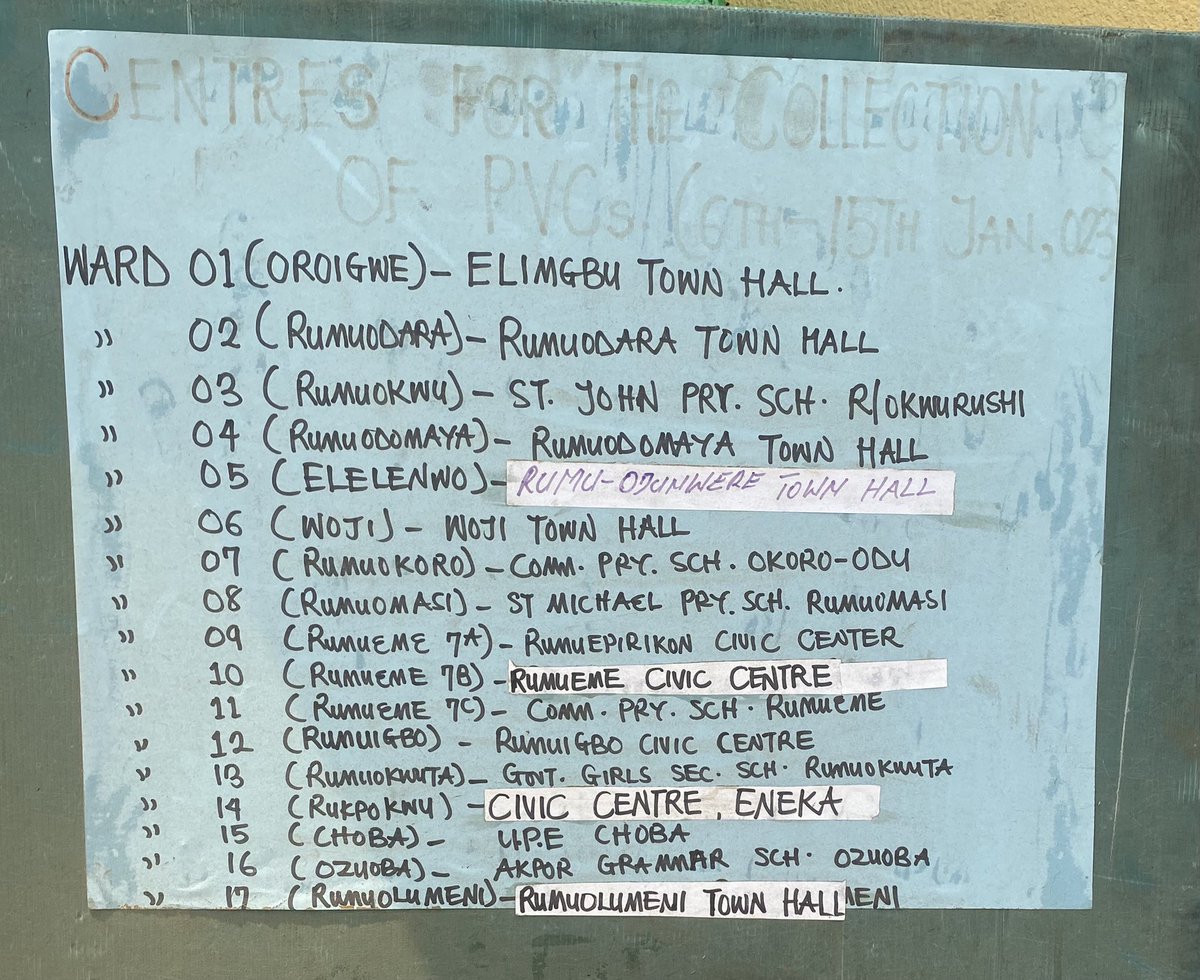 CENTRES FOR THE COLLECTION
OF PVCs (6TH-15TH JAN, 023)
WARD 01 (OROIGWE) - ELIMGBU TOWN HALL.
" 02 (RUMUODARA) - RUMUODARA TOWN HALL
" 03 (RUMUOKWU) - ST. JOHN PRY. SCH. R/OKWURUSHI
" 04 (RUMUODOMAYA) - RUMUODOMAYA TOWN HALL
" 05 (ELELENWO) - RUMU-ODUNWERE TOWN HALL
" 06 (WOJI) - WOJI TOWN HALL
" 07 (RUMUOKORO) - COMM. PRY. SCH. OKORO-ODU
" 08 (RUMUOMASI) - ST MICHAEL PRY. SCH. RUMUOMASI
" 09 (RUMUEME 7A) - RUMUEPIRIKON CIVIC CENTER
" 10 (RUMUEME 7B) - RUMUEME CIVIC CENTRE
" 11 (RUMUEME 7C) - COMM. PRY. SCH. RUMUEME
" 12 (RUMUIGBO) - RUMUIGBO CIVIC CENTRE
" 13 (RUMUOKWUTA) - GOVT. GIRLS SEC. SCH. RUMUOKWUTA
" 14 (RUKPOKWU) - CIVIC CENTRE, ENEKA
" 15 (CHOBA) - U.P.E CHOBA
" 16 (OZUOBA) - AKPOR GRAMMAR SCH. OZUOBA
" 17 (RUMUOLUMENI) - RUMUOLUMENI TOWN HALL MENI